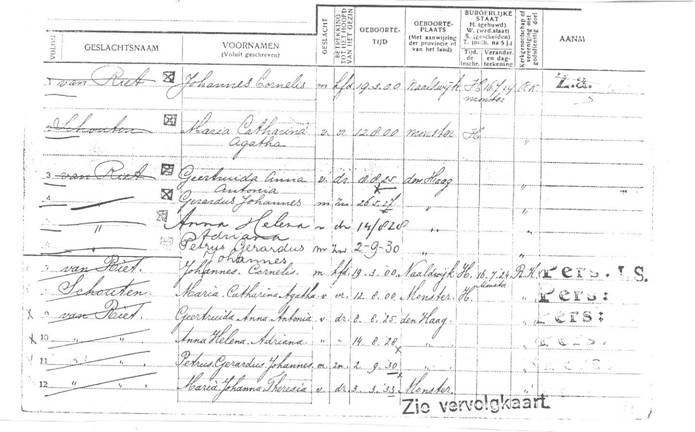 VOLGNR. GESLACHTSNAAM VOORNAMEN (Voluit geschreven) GESLACHT BETREKKING TOT HET HOOFD VAN HET GEZIN GEBOORTE-TIJD GEBOORTE-PLAATS (Met aanwijzing der provincie of van het land) BURGERLIJKE STAAT H. (gehuwd) W. (wed.staat) S. (gescheiden) Tijd. de inschr. Verander. en dag-teekening Kerkgenootschap of vereeniging met godsdienstig doel AANM
van Riet Johannes Cornelis m hfd 19.3.00 Naaldwijk H 16.7.24 R.K.
monster
Schouten Maria Catharina v. vr. 12.8.00 Monster H "
Agatha
3 van Riet Geertruida Anna v. dr. 8.8.25 den Haag "
Antonia
4 " Gerardus Johannes m zn 26.5.27 " "
" Anna Helena v dr 14/8 28 " "
Adriana
" Petrus Gerardus m zn 2-9-30 " "
Johannes
van Riet. Johannes. Cornelis. m hfd. 19.3.00 Naaldwijk H. 16.7.24 R.K. Pers. I.S.
Monster
Schouten Maria. Catharina Agatha v vr. 12.8.00 Monster. H. " Pers:
9 van Riet. Geertruida Anna Antonia v dr. 8.8.25 den Haag. " Pers:
10 " " Anna Helena. Adriana " " 14.8.28 " " Pers.
11 " " Petrus. Gerardus Johannes. m zn. 2.9.30 " "
12 " " Maria Johanna Theresia v. dr. 3.3.33 Monster. "
Zie vervolgkaart